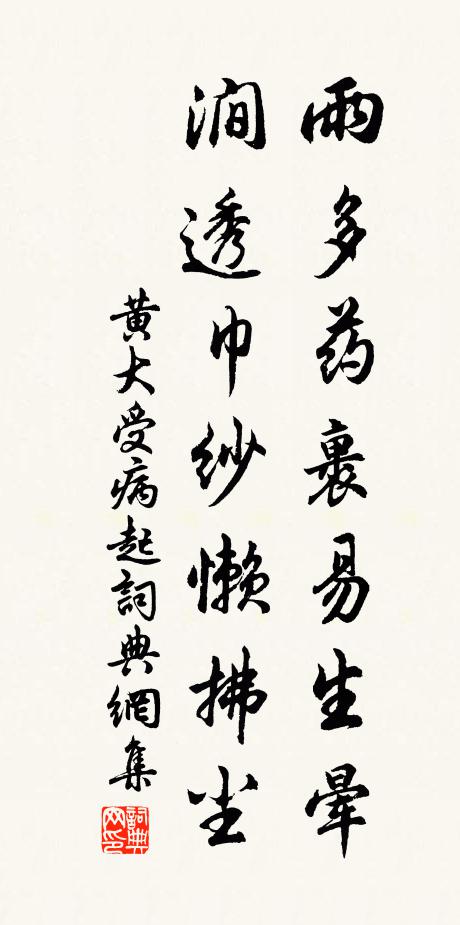 雨多药裹易生晕
涧透巾纱懒拂尘
黄大受病起詞典網集
詞典网印